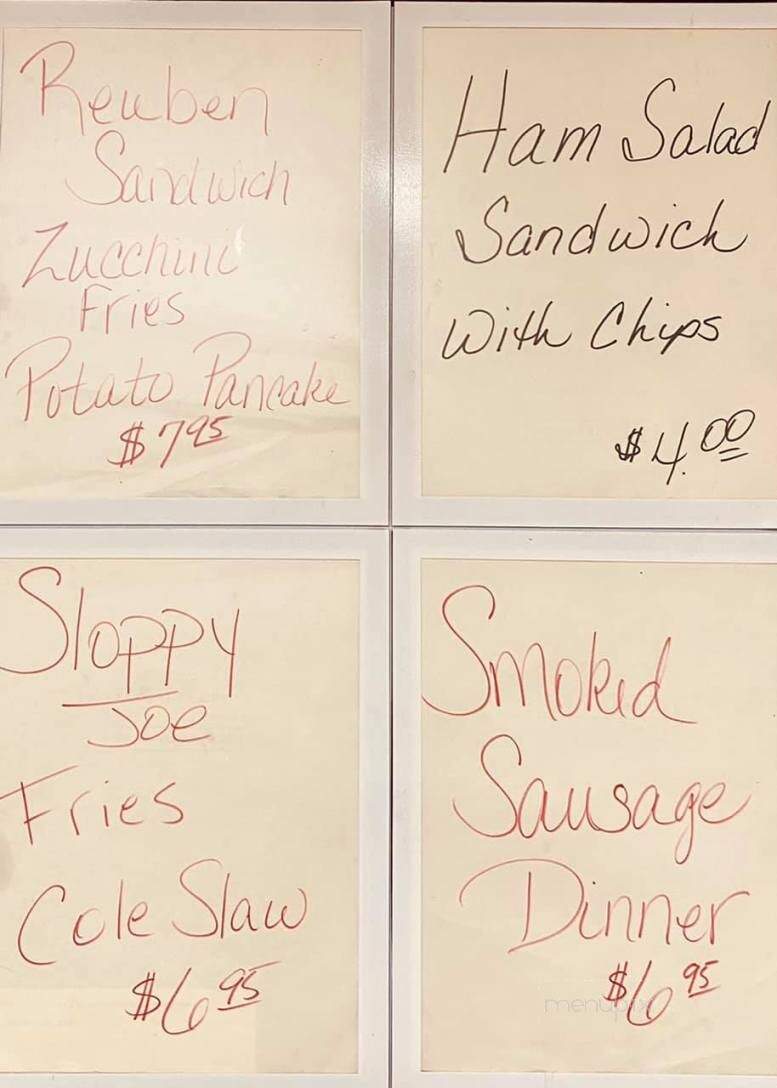 Reuben
Sandwich
Zucchini
Fries
Potato Pancake
$7 95
Ham Salad
Sandwich
With Chips
$4.00
Sloppy
Joe
Fries
Cole Slaw
$6 95
Smoked
Sausage
Dinner
$6 95